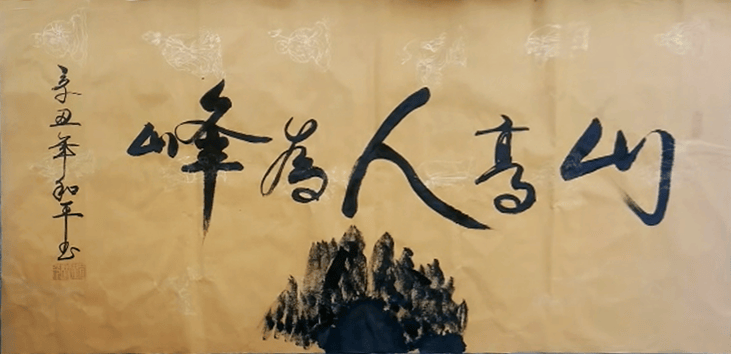 山高人為峰
辛丑年和平书